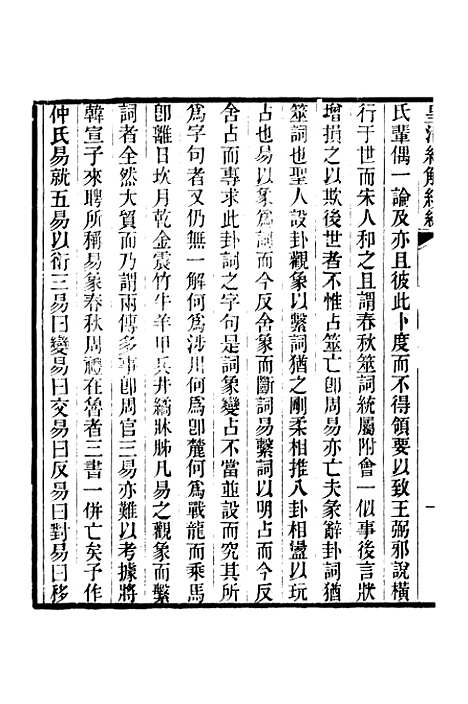 皇清經解續編
一
氏輩偶一論及亦且彼此卜度而不得領要以致王弼邪說橫
行于世而宋人和之且謂春秋筮詞統屬附會一似事後言狀
增損之以欺後世者不惟占筮亡卽周易亦亡夫彖辭卦詞猶
筮詞也聖人設卦觀象以繫詞猶之剛柔相推八卦相盪以玩
占也易以象爲詞而今反舍象而斷詞易繫詞以明占而今反
舍占而專求此卦詞之字句是詞象變占不當並設而究其所
爲字句者又仍無一解何爲涉川何爲卽麓何爲戰龍而乘馬
卽離日坎月乾金震竹牛羊甲兵井繘牀脁凡易之觀象而繫
詞者全然大質而乃謂兩傳多事卽周官三易亦難以考據將
韓宣子來聘所稱易象春秋周禮在魯者三書一併亡矣子作
仲氏易就五易以衍三易曰變易曰交易曰反易曰對易曰移